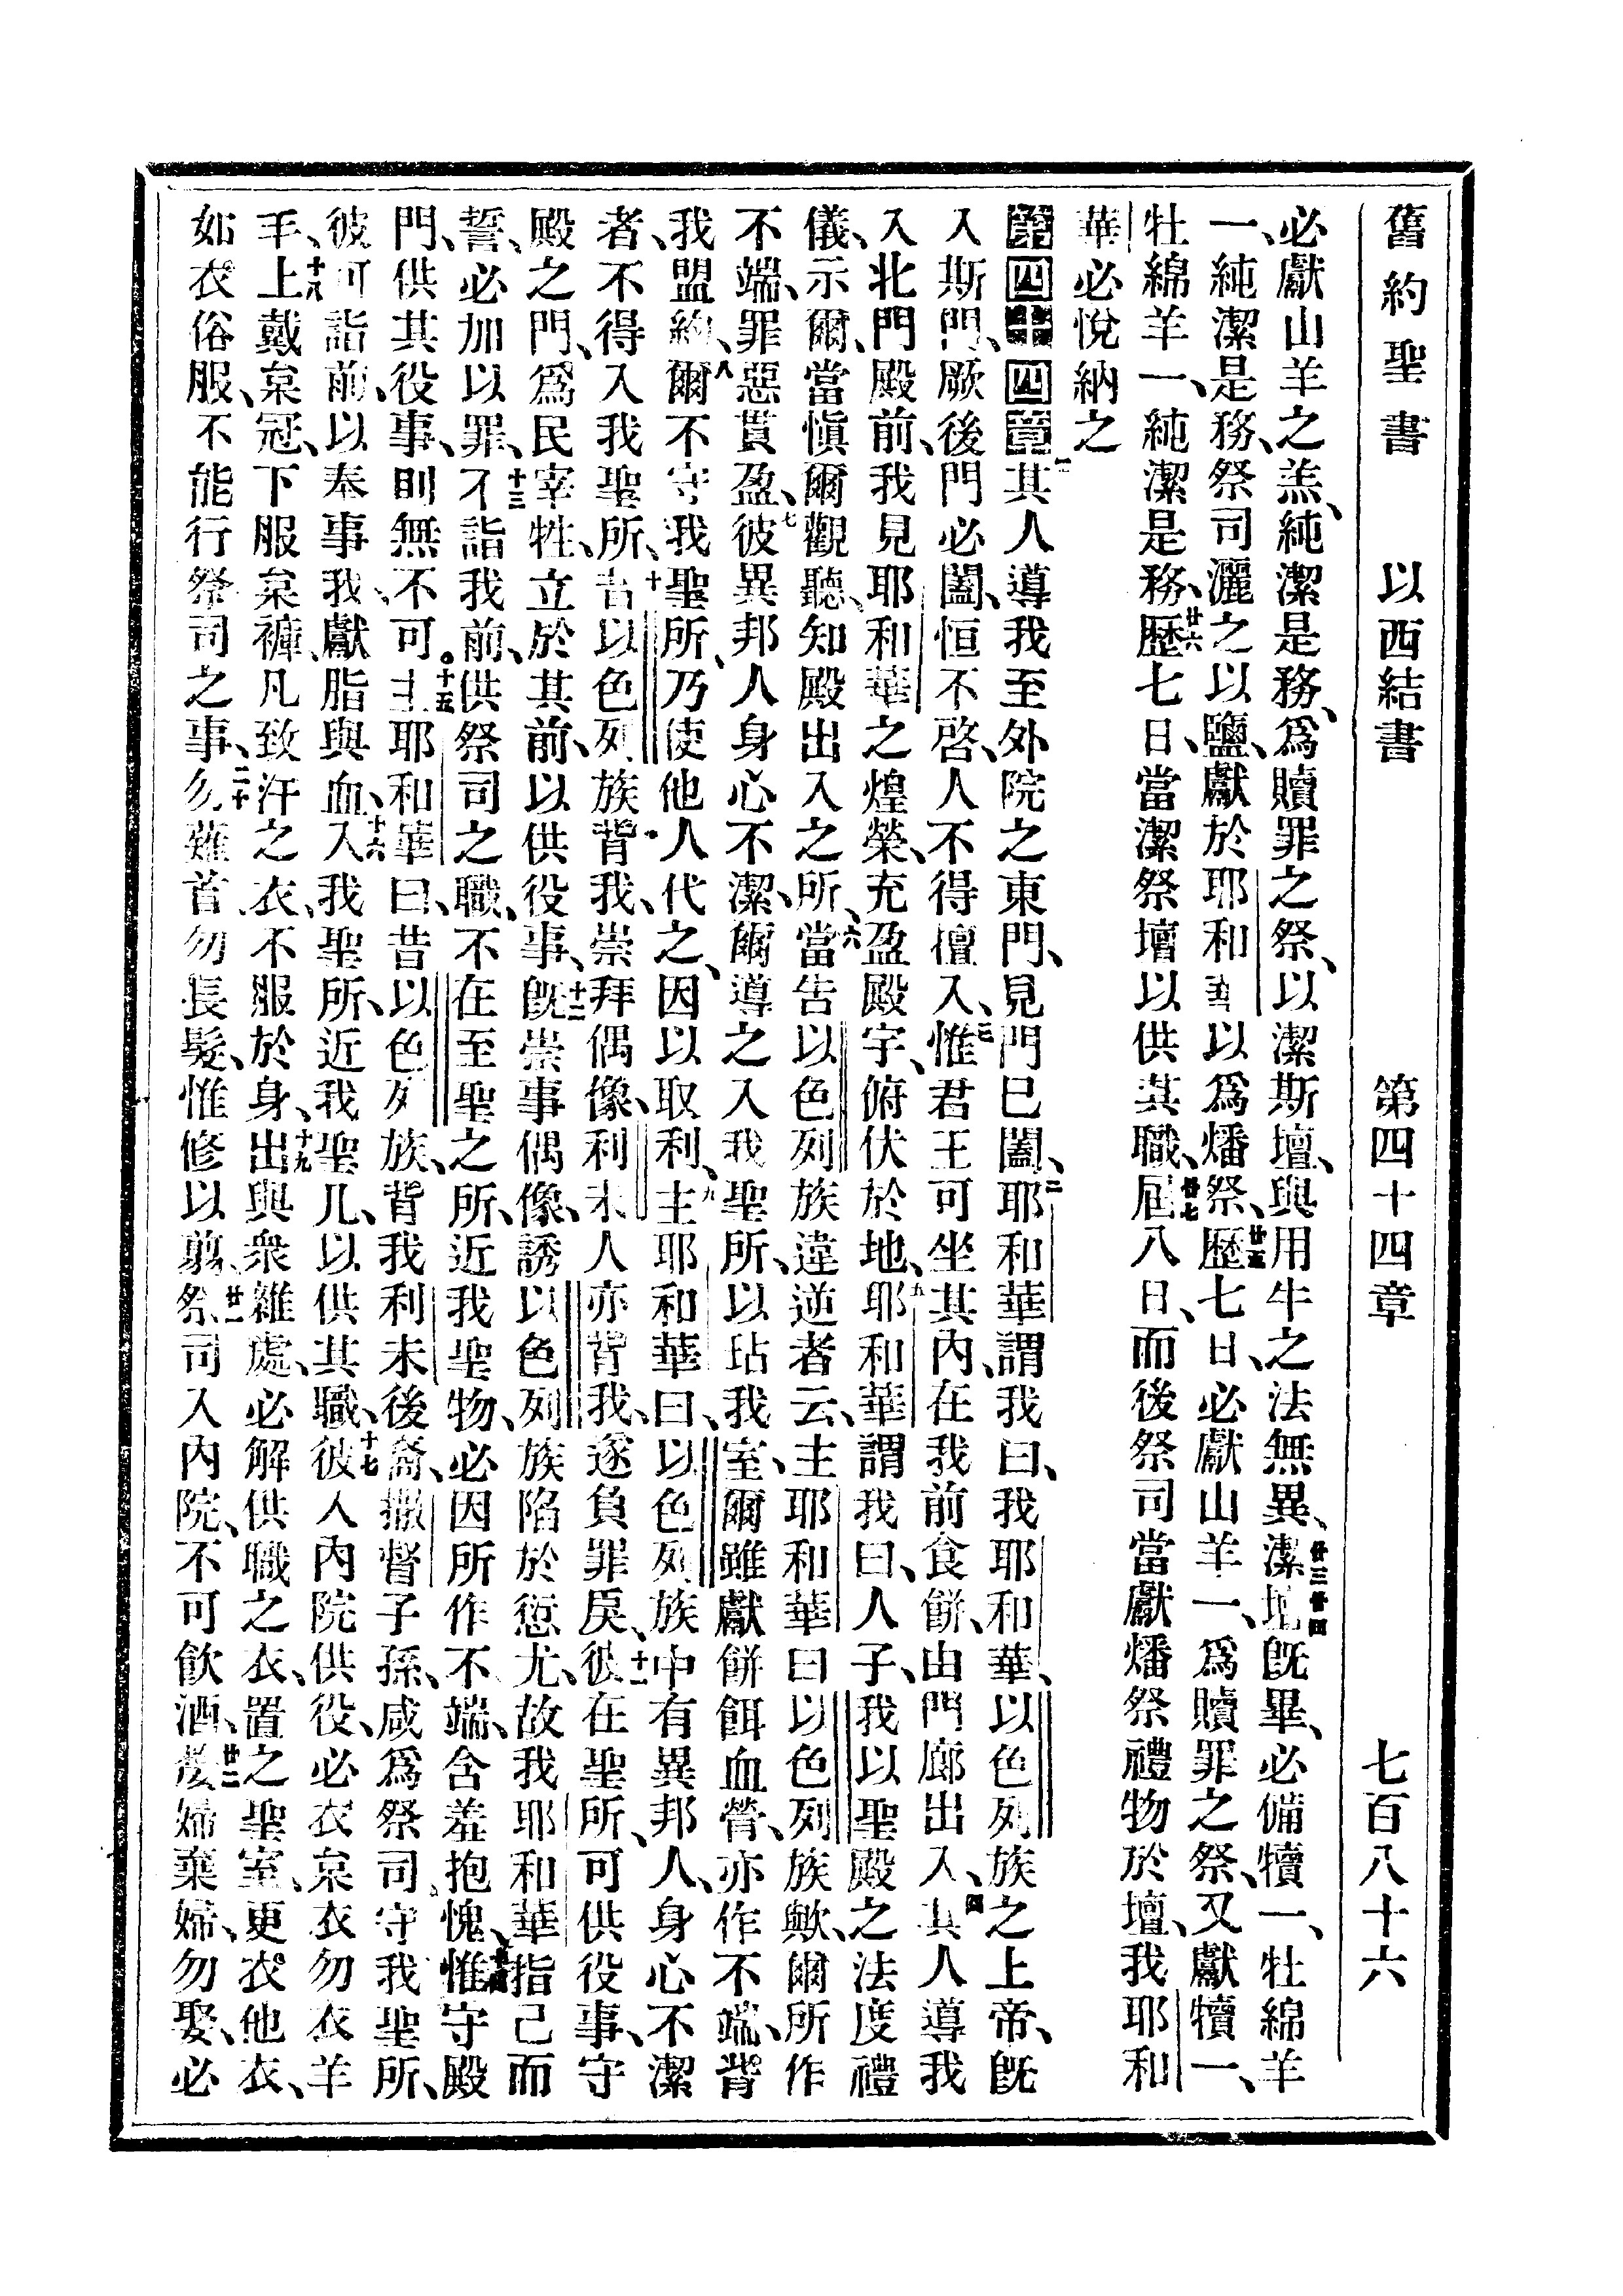 舊約聖書 以西結書 第四十四章 七百八十六
必獻山羊之羔、純潔是務、爲贖罪之祭、以潔斯壇、與用牛之法無異、廿三廿四潔壇旣畢、必備犢一、牡綿羊
一、純潔是務、祭司灑之以鹽、獻於耶和華以爲燔祭、廿五歷七日、必獻山羊一、爲贖罪之祭、又獻犢一、
牡綿羊一、純潔是務、廿六歷七日、當潔祭壇以供其職、廿七屆八日、而後祭司當獻燔祭禮物於壇、我耶和
華必悅納之
第四十四章 一其人導我至外院之東門、見門已闔、二耶和華謂我曰、我耶和華、以色列族之上帝、旣
入斯門、厥後門必闔、恒不啓、人不得擅入、三惟君王可坐其內、在我前食餅、由門廊出入、四其人導我
入北門殿前、我見耶和華之煌榮、充盈殿宇、俯伏於地、五耶和華謂我曰、人子、我以聖殿之法度禮
儀、示爾、當愼爾觀聽、知殿出入之所、六當告以色列族違逆者云、主耶和華曰以色列族歟、爾所作
不端、罪惡貰盈、七彼異邦人身心不潔、爾導之入我聖所、以玷我室、爾雖獻餅餌血膋、亦作不端、背
我盟約、八爾不守我聖所、乃使他人代之、因以取利、九主耶和華曰、以色列族中有異邦人、身心不潔
者、不得入我聖所、十昔以色列族背我、崇拜偶像、利未人亦背我、遂負罪戾、十一彼在聖所、可供役事、守
殿之門、爲民宰牲、立於其前、以供役事、十二旣崇事偶像、誘以色列族陷於愆尤、故我耶和華指己而
誓、必加以罪、十三不詣我前、供祭司之職、不在至聖之所、近我聖物、必因所作不端、含羞抱愧、十四惟守殿
門、供其役事、則無不可。十五主耶和華曰、昔以色列族、背我利未後裔、撒督子孫、咸爲祭司、守我聖所、
彼可詣前、以奉事我、獻脂與血、十六入我聖所、近我聖几、以供其職、十七彼入內院供役、必衣枲衣勿衣羊
毛、十八上戴枲冠、下服枲褲、凡致汗之衣、不服於身、十九出與衆雜處、必解供職之衣、置之聖室、更衣他衣、
如衣俗服、不能行祭司之事、二十勿薙首、勿長髮、惟修以剪、廿一祭司入內院、不可飮酒、廿二嫠婦棄婦、勿娶、必